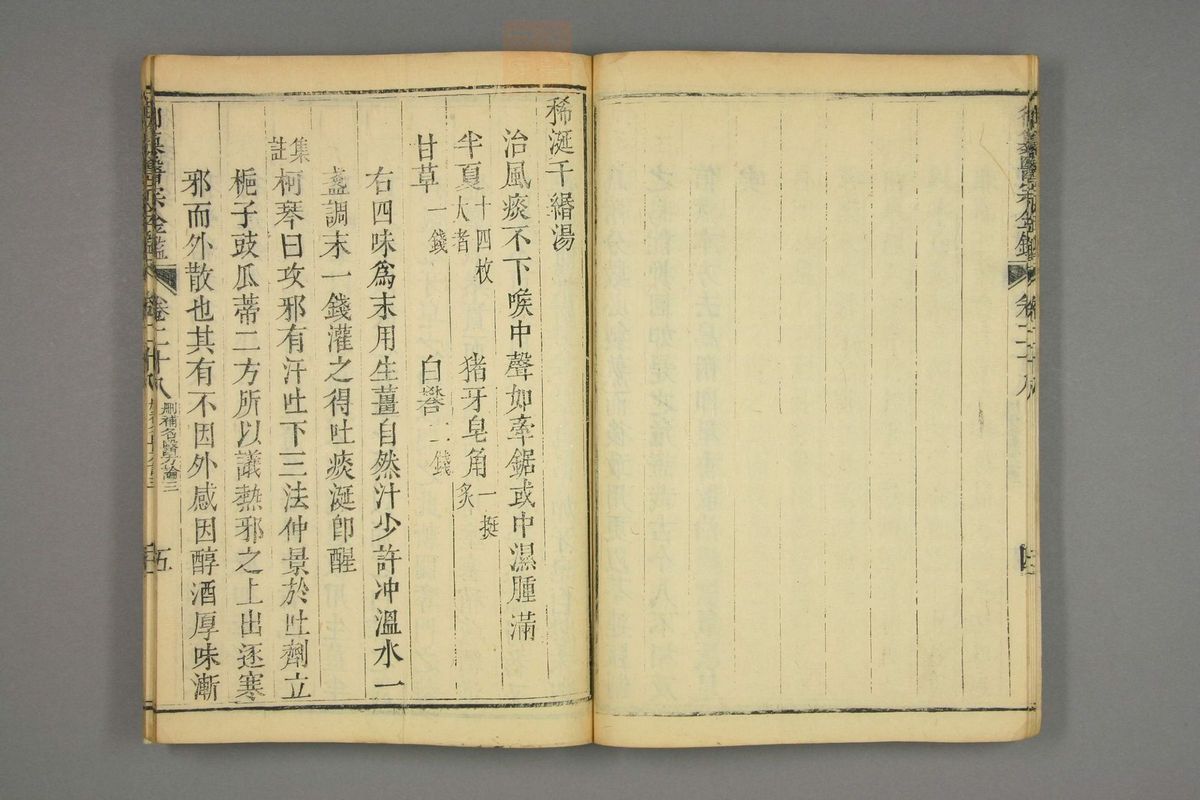 御纂醫宗金鑑 卷二十八 四
稀涎千緡湯
治風痰不下喉中聲如牽鋸或中濕腫滿
半夏大者十四枚 猪牙皂角一挺炙
甘草一錢 白礬二錢
右四味爲末用生薑自然汁少許冲溫水一
盞調末一錢灌之得吐痰涎卽醒
集註柯琴曰攻邪有汗吐下三法仲景於吐劑立
梔子豉瓜蒂二方所以議熱邪之上出逐寒
邪而外散也其有不因外感因醇酒厚味漸
御纂醫宗金鑑 卷二十八 刪補名醫方論三 五